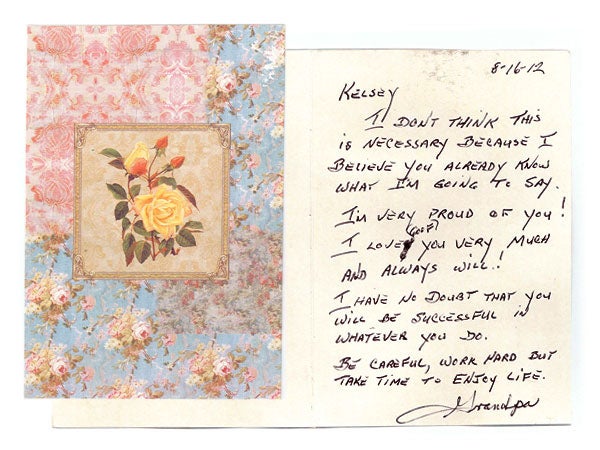 8-16-12
KELSEY
I DON'T THINK THIS
IS NECESSARY BECAUSE I
BELIEVE YOU ALREADY KNOW
WHAT I'M GOING TO SAY.
I'M VERY PROUD OF YOU!
(GOOF)
I LOVE YOU VERY MUCH
AND ALWAYS WILL!
I HAVE NO DOUBT THAT YOU
WILL BE SUCCESSFUL IN
WHATEVER YOU DO.
BE CAREFUL, WORK HARD BUT
TAKE TIME TO ENJOY LIFE.
Grandpa